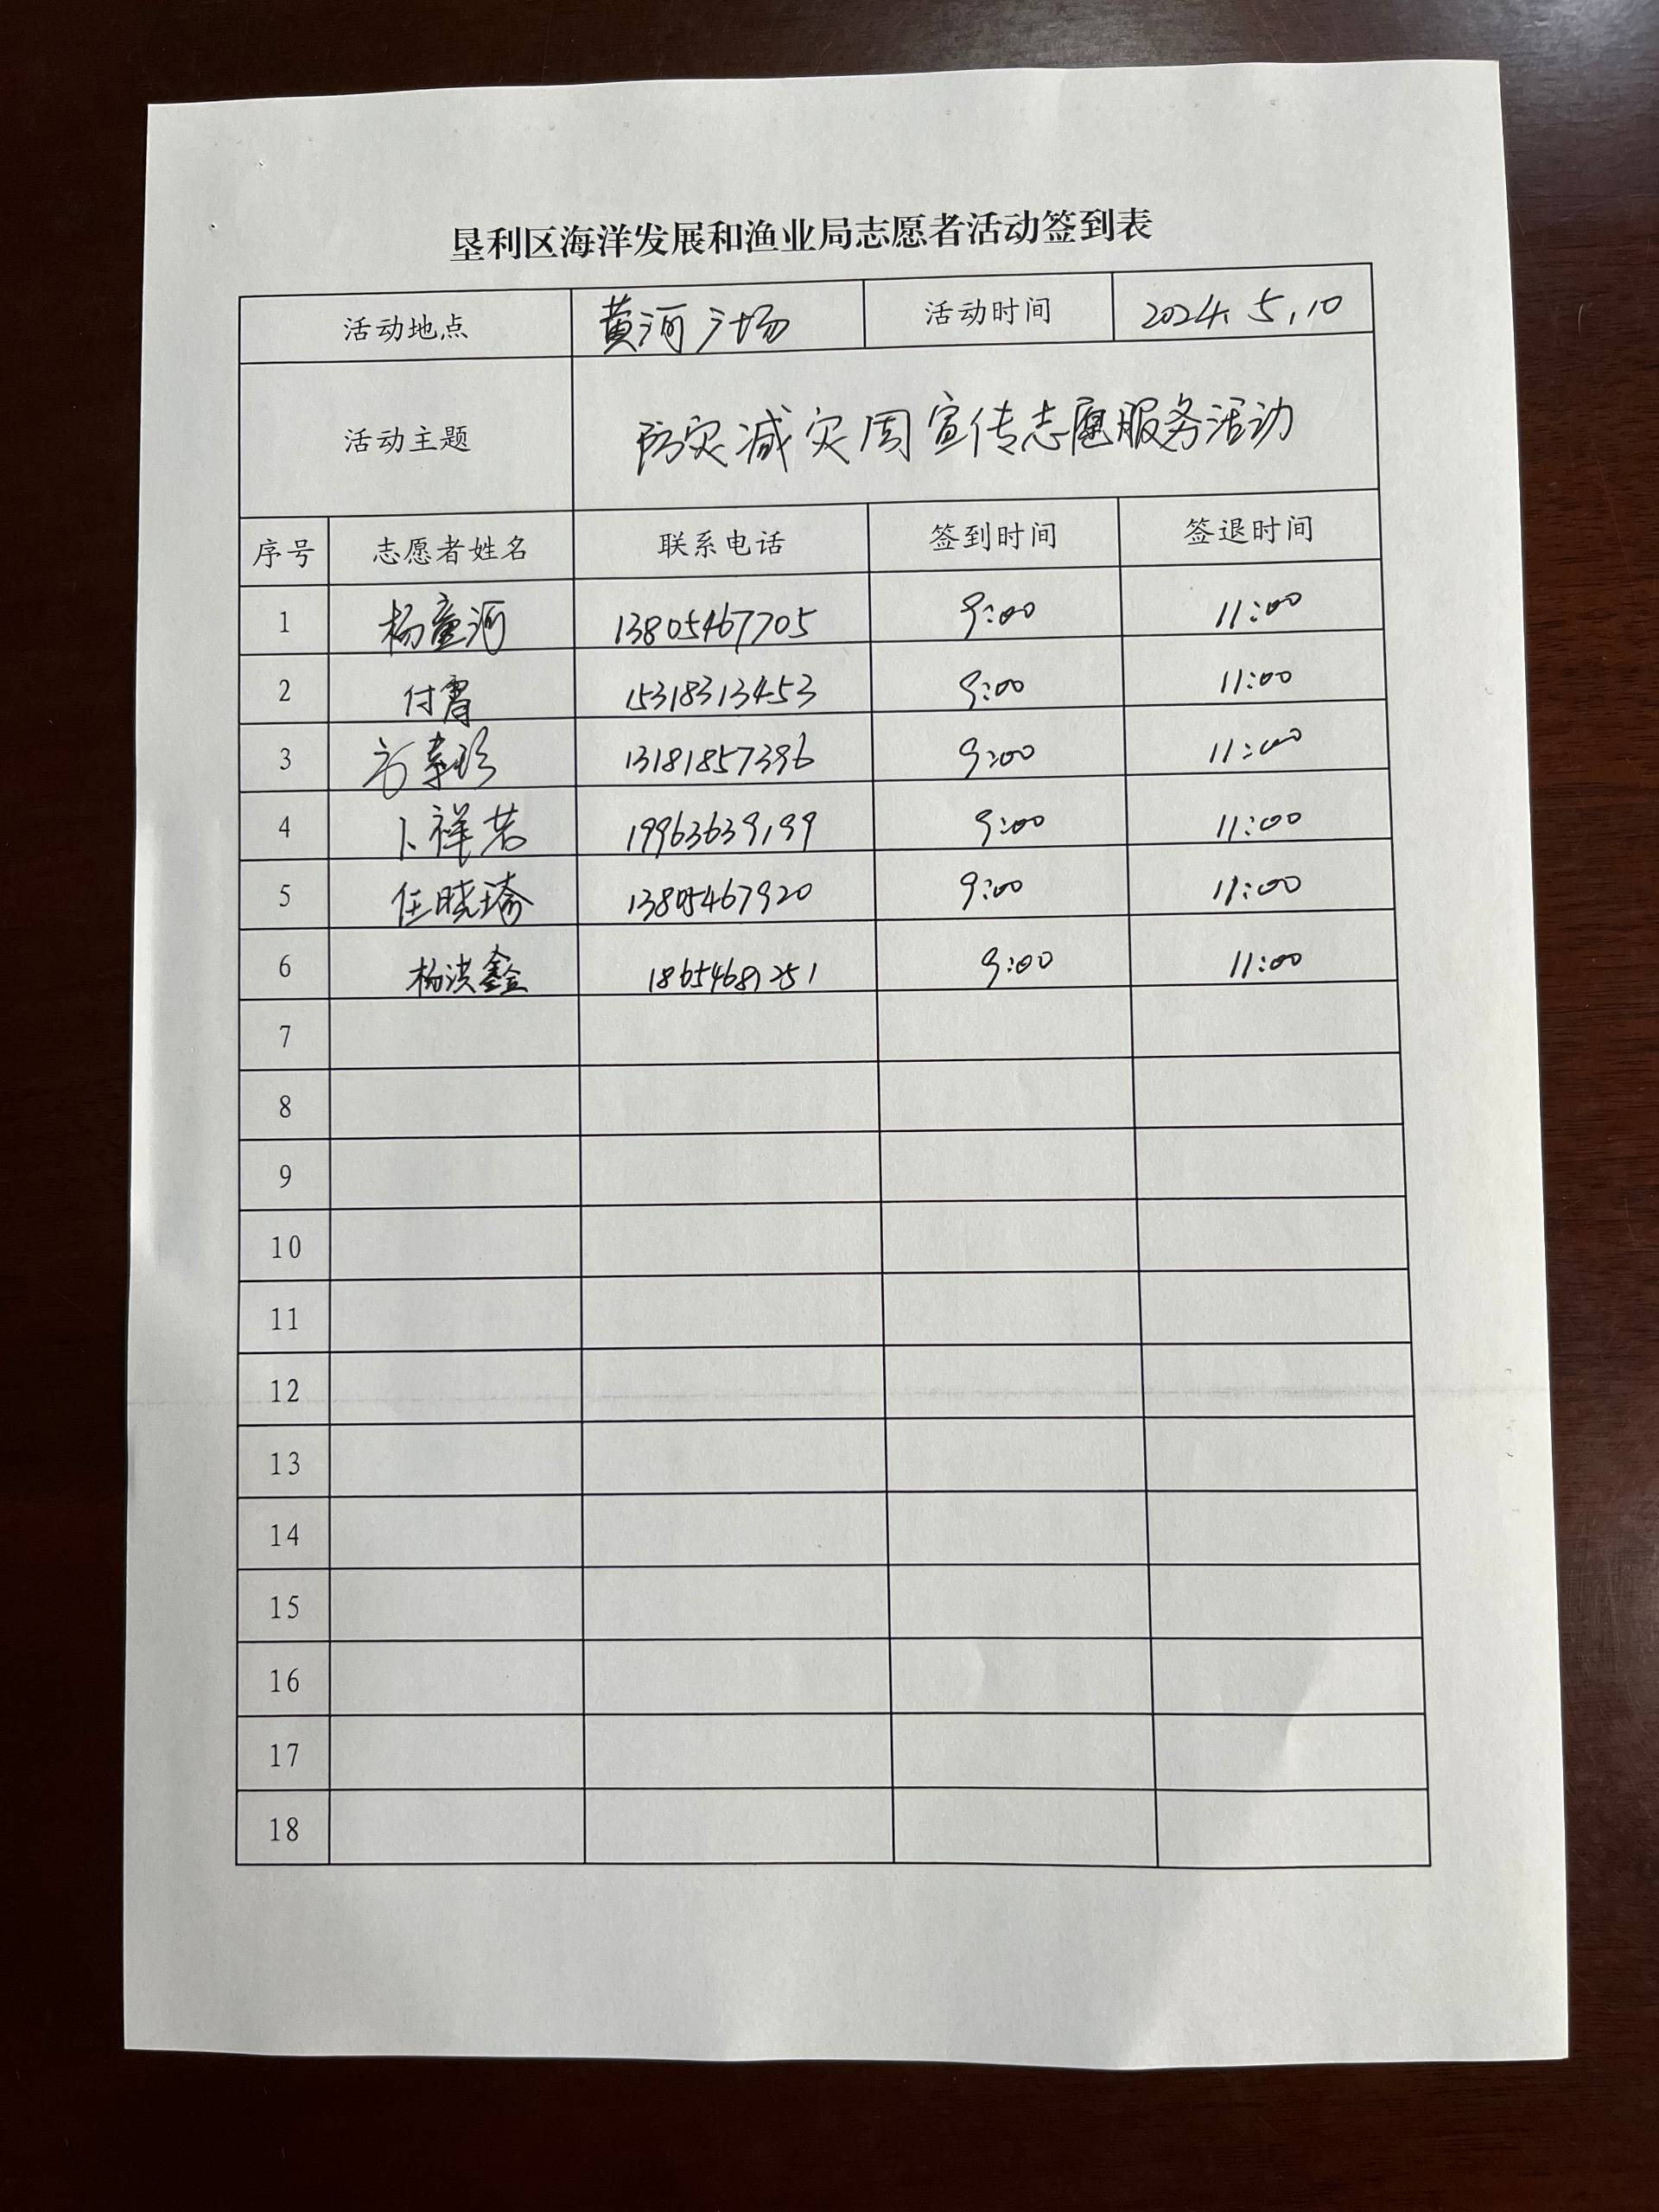 垦利区海洋发展和渔业局志愿者活动签到表
活动地点 黄河广场 活动时间 2024.5.10
活动主题 防灾减灾周宣传志愿服务活动
序号 志愿者姓名 联系电话 签到时间 签退时间
1 杨童河 13805467705 9:00 11:00
2 付霄 15318313453 9:00 11:00
3 13181857396 9:00 11:00
4 卜祥若 19963639199 9:00 11:00
5 任晓瑜 13805467920 9:00 11:00
6 杨洪鑫 9:00 11:00
7
8
9
10
11
12
13
14
15
16
17
18